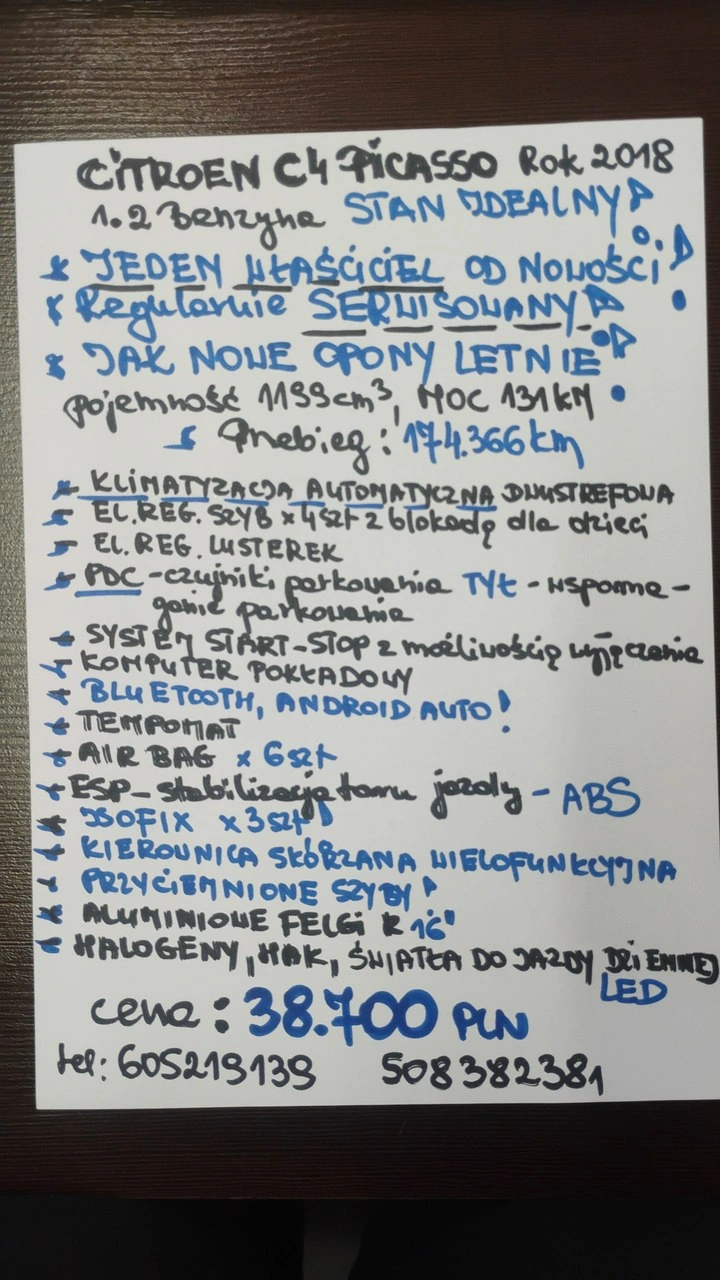 CiTROEN C4 PiCASSO Rok 2018
1.2 Benzyna STAN IDEALNY!
* JEDEN WŁAŚCiCiEL OD NOWOŚCi!
* Regularnie SERWISOWANY!
* JAK NOWE OPONY LETNIE!
pojemność 1199cm³, MOC 131KM
* Przebieg: 174.366km
* KLiMATYZACJA AUTOMATYCZNA DWUSTREFOWA
* EL.REG. SZYB x 4szt z blokadą dla dzieci
* EL.REG. LUSTEREK
* PDC - czujniki parkowania TYŁ - wspoma-
ganie parkowania
* SYSTEM START-STOP z możliwością wyłączenia
* KOMPUTER POKŁADOWY
* BLUETOOTH, ANDROID AUTO!
* TEMPOMAT
* AIR BAG x 6szt
* ESP - stabilizacja toru jazdy - ABS
* ISOFIX x 3szt!
* KIEROWNICA SKÓRZANA WIELOFUNKCYJNA
* PRZYCIEMNIONE SZYBY!
* ALUMINIOWE FELGi R 16"
* HALOGENY, HAK, ŚWIATŁA DO JAZDY DZiENNEJ
LED
cena: 38.700 PLN
tel: 605219139 508382381